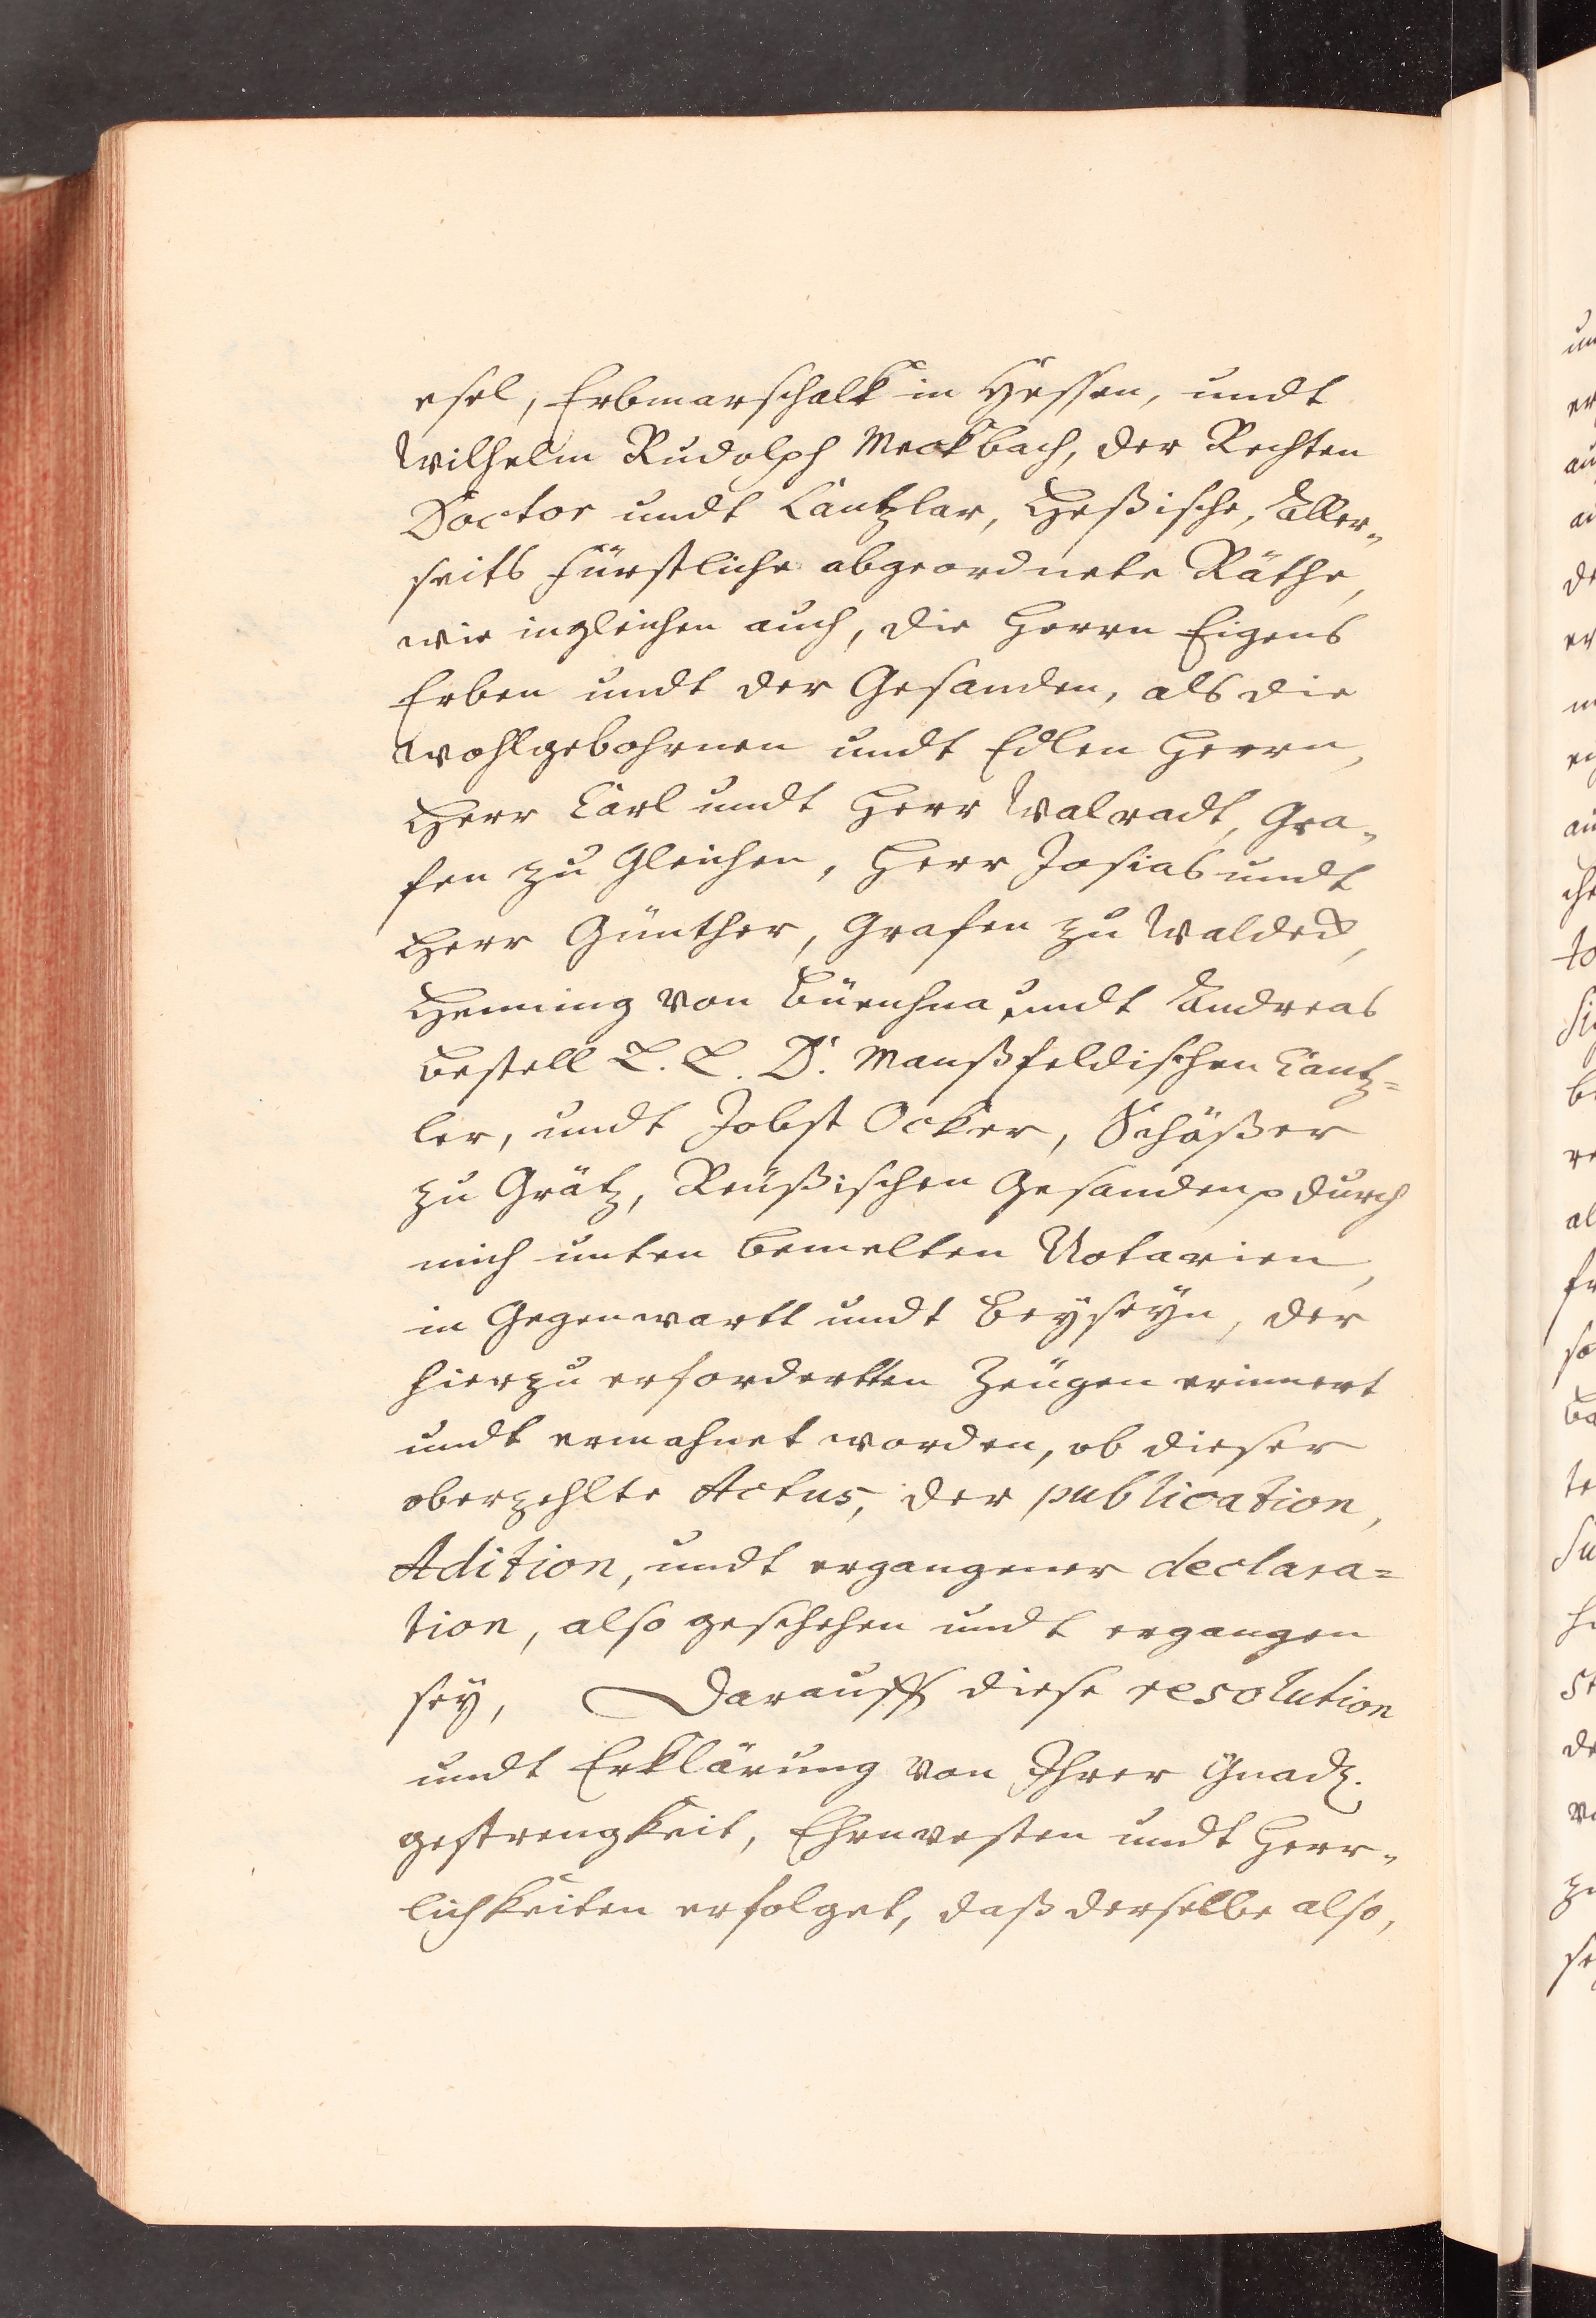 esel, Erbmarschalk in Hessen, undt
Wilhelm Rudolph Meckbach, der Rechten
Doctor undt Cantzlar, Heßische, Aller„
seits fürstliche abgeordnete Räthe,
wie ingleichen auch, die Herrn Eigens
Erben undt der Gesanden, als die
wohlgebohrnen undt Edlen Herrn,
Herr Carl undt Herr Walradt, Gra„
fen zu Gleichen, Herr Josias undt
Herr Günther, Grafen zu Waldeck,
Henning von undt Andreas
Bestell L. L. D. Manßfeldischen Cantz=
ler, undt Jobst Ocker, Schößer
zu Grätz, Reüßischen Gesanden durch
mich unten bemelten Notarien,
in Gegenwartt undt Beyseyn, der
hierzu erfordertten Zeügen erinnert
undt ermahnet worden, ob dieser
oberzehlte Actus, der publication,
Adition, undt ergangener declara=
tion, also geschehen undt ergangen
sey, Darauff diese resolution
undt Erklärung von Ihrer Gnad.
gestrengkeit, Ehrnvesten undt Herr„
lichkeiten erfolget, daß derselbe also,